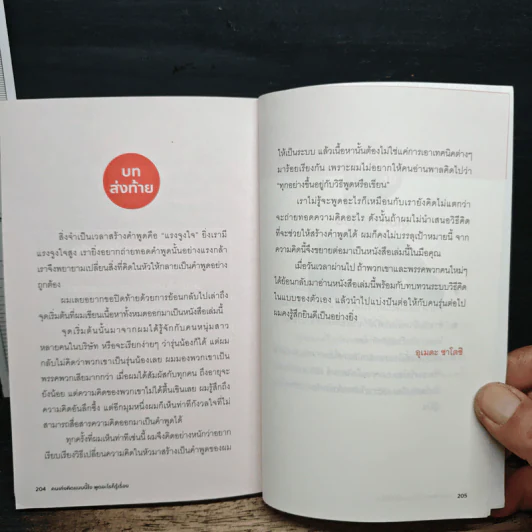 บท
ส่งท้าย
สิ่งจำเป็นเวลาสร้างคำพูดคือ “แรงจูงใจ” ยิ่งเรามี
แรงจูงใจสูง เรายิ่งอยากถ่ายทอดคำพูดนั้นอย่างแรงกล้า
เราจึงพยายามเปลี่ยนสิ่งที่คิดในหัวให้กลายเป็นคำพูดอย่าง
ถูกต้อง
ผมเลยอยากขอปิดท้ายด้วยการย้อนกลับไปเล่าถึง
จุดเริ่มต้นที่ผมเขียนเนื้อหาทั้งหมดออกมาเป็นหนังสือเล่มนี้
จุดเริ่มต้นนั้นมาจากผมได้รู้จักกับคนหนุ่มสาว
หลายคนในบริษัท หรือจะเรียกง่ายๆ ว่ารุ่นน้องก็ได้ แต่ผม
กลับไม่คิดว่าพวกเขาเป็นรุ่นน้องเลย ผมมองพวกเขาเป็น
พรรคพวกเสียมากกว่า เมื่อผมได้สัมผัสกับทุกคน ถึงอายุจะ
ยังน้อย แต่ความคิดของพวกเขาไม่ได้ตื้นเขินเลย ผมรู้สึกถึง
ความคิดอันลึกซึ้ง แต่อีกมุมหนึ่งผมก็เห็นท่าทีกังวลใจที่ไม่
สามารถสื่อสารความคิดออกมาเป็นคำพูดได้
ทุกครั้งที่ผมเห็นท่าทีเช่นนี้ ผมจึงคิดอย่างหนักว่าอยาก
เรียบเรียงวิธีเปลี่ยนความคิดในหัวมาสร้างเป็นคำพูดของผม
204 คนเก่งคิดแบบนี้จึง พูดอะไรก็รู้เรื่อง
ให้เป็นระบบ แล้วเนื้อหานั้นต้องไม่ใช่แค่การเอาเทคนิคต่างๆ
มาร้อยเรียงกัน เพราะผมไม่อยากให้คนอ่านพาลคิดไปว่า
“ทุกอย่างขึ้นอยู่กับวิธีพูดหรือเขียน”
เราไม่รู้จะพูดอะไรก็เหมือนกับเรายังคิดไม่แตกว่า
จะถ่ายทอดความคิดอะไร ดังนั้นถ้าผมไม่นำเสนอวิธีคิด
ที่จะช่วยให้สร้างคำพูดได้ ผมก็คงไม่บรรลุเป้าหมายนี้ จาก
ความคิดนี้จึงขยายต่อมาเป็นหนังสือเล่มนี้ในมือคุณ
เมื่อวันเวลาผ่านไป ถ้าพวกเขาและพรรคพวกคนใหม่ๆ
ได้ย้อนกลับมาอ่านหนังสือเล่มนี้พร้อมกับทบทวนระบบวิธีคิด
ในแบบของตัวเอง แล้วนำไปแบ่งปันต่อให้กับคนรุ่นต่อไป
ผมคงรู้สึกยินดีเป็นอย่างยิ่ง
อุเมดะ ซาโตชิ
205